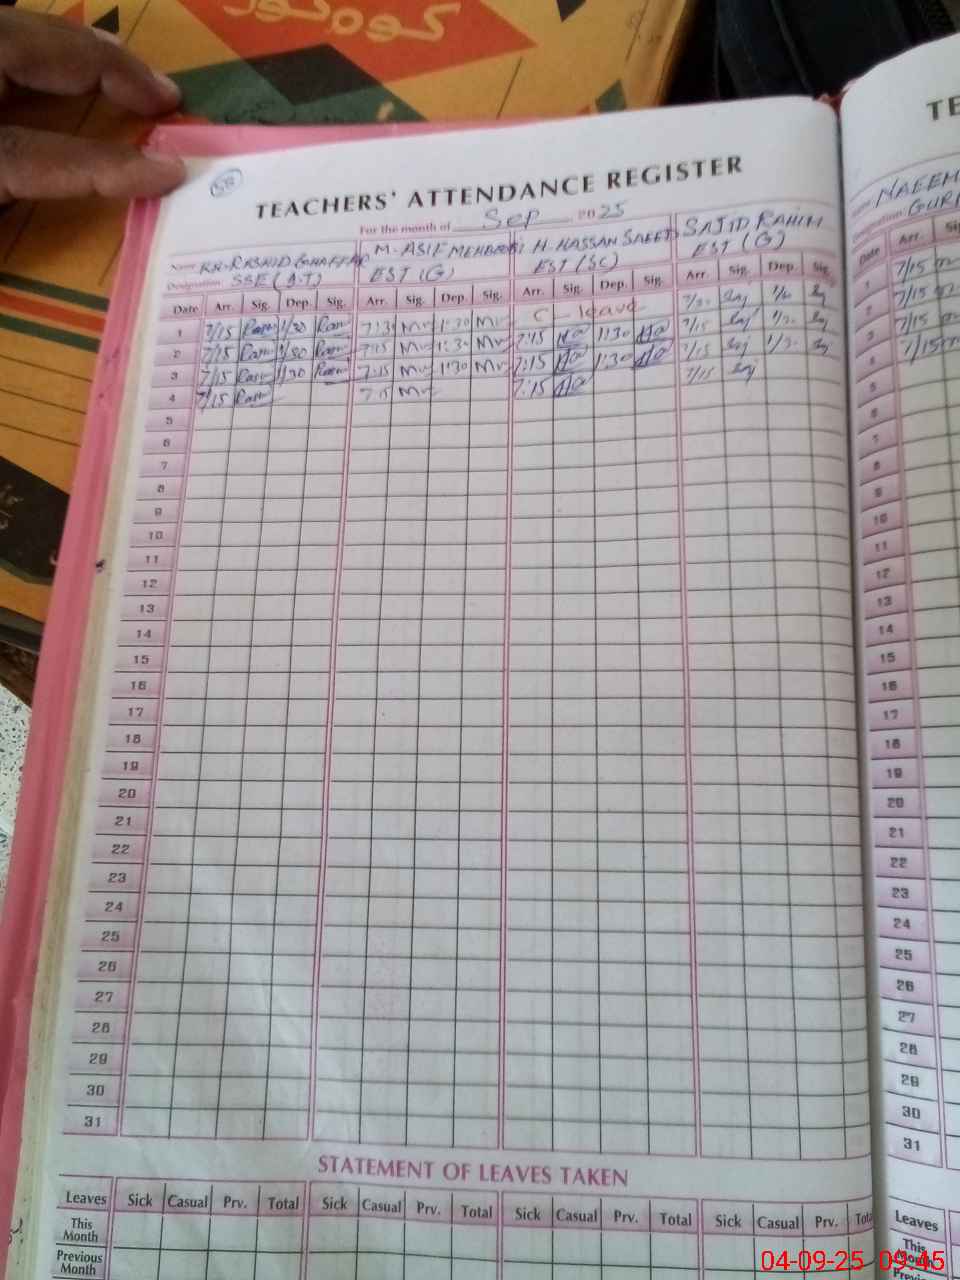 گوہرنور
58
TEACHERS' ATTENDANCE REGISTER
For the month of Sep 2025
Name KH. RASHID GHAFFAR M. ASIF MEHBOOB H. HASSAN SAEED SAJID RAHIM
Designation SSE (A.T) EST (G) EST (SC) EST (G)
Date Arr. Sig. Dep. Sig. Arr. Sig. Dep. Sig. Arr. Sig. Dep. Sig. Arr. Sig. Dep. Sig.
1 7/15 1/30 7:30 1:30 C - leave 7/30
2 7/15 1/30 7:15 1:30 7:15 1:30 7/15
3 7/15 1/30 7:15 1:30 7:15 1:30 7/15
4 7/15 7:15 7:15 7/15
5
6
7
8
9
10
11
12
13
14
15
16
17
18
19
20
21
22
23
24
25
26
27
28
29
30
31
STATEMENT OF LEAVES TAKEN
Leaves Sick Casual Prv. Total Sick Casual Prv. Total Sick Casual Prv. Total Sick Casual Prv.
This Month
Previous Month
NAEEM
Date Arr.
1 7/15
2 7/15
3 7/15
4 7/15
5
6
7
8
9
10
11
12
13
14
15
16
17
18
19
20
21
22
23
24
25
26
27
28
29
30
31
Leaves
This Month
04-09-25 09:45